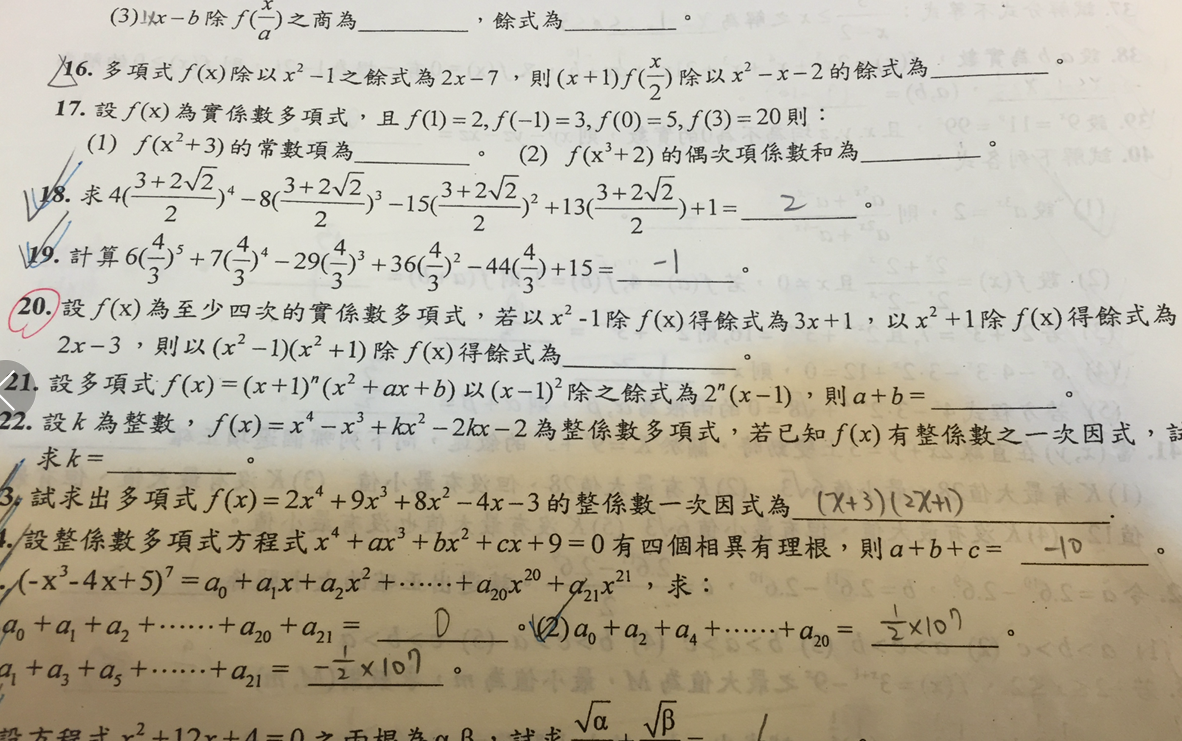 (3)以x−b除f(x/a)之商為________，餘式為________。
16. 多項式f(x)除以x²−1之餘式為2x−7，則(x+1)f(x/2)除以x²−x−2的餘式為________。
17. 設f(x)為實係數多項式，且f(1)=2, f(−1)=3, f(0)=5, f(3)=20則：
(1) f(x²+3)的常數項為________。 (2) f(x³+2)的偶次項係數和為________。
18. 求4((3+2√2)/2)⁴−8((3+2√2)/2)³−15((3+2√2)/2)²+13((3+2√2)/2)+1= 2 。
19. 計算6(4/3)⁵+7(4/3)⁴−29(4/3)³+36(4/3)²−44(4/3)+15= -1 。
20. 設f(x)為至少四次的實係數多項式，若以x²-1除f(x)得餘式為3x+1，以x²+1除f(x)得餘式為
2x−3，則以(x²−1)(x²+1)除f(x)得餘式為________。
21. 設多項式f(x)=(x+1)ⁿ(x²+ax+b)以(x−1)²除之餘式為2ⁿ(x−1)，則a+b=________。
22. 設k為整數，f(x)=x⁴−x³+kx²−2kx−2為整係數多項式，若已知f(x)有整係數之一次因式，試
求k=________。
3. 試求出多項式f(x)=2x⁴+9x³+8x²−4x−3的整係數一次因式為 (x+3)(2x+1) .
. 設整係數多項式方程式x⁴+ax³+bx²+cx+9=0有四個相異有理根，則a+b+c= -10 。
. (-x³-4x+5)⁷=a₀+a₁x+a₂x²+⋯⋯+a₂₀x²⁰+a₂₁x²¹，求：
a₀+a₁+a₂+⋯⋯+a₂₀+a₂₁= 0 。(2)a₀+a₂+a₄+⋯⋯+a₂₀= 1/2×10⁷ 。
a₁+a₃+a₅+⋯⋯+a₂₁= -1/2×10⁷ 。
設方程式x²+12x+4=0之兩根為α,β，試求√α √β